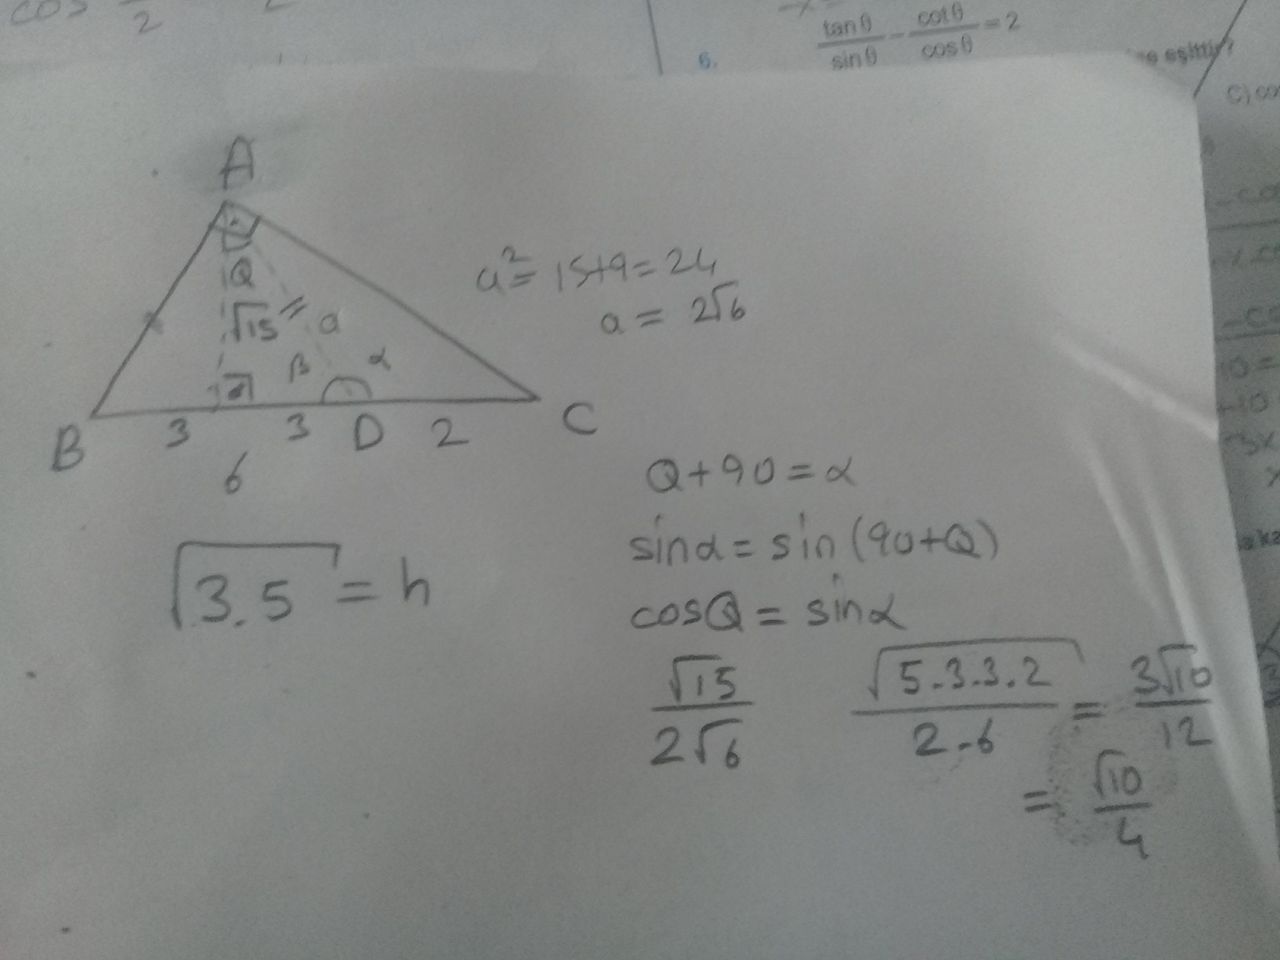 cos
2
6.
tanθ/sinθ - cotθ/cosθ = 2
eşittir?
A
Q
√15
a
β α
B 3 3 D 2 C
6
a² = 15+9 = 24
a = 2√6
√3.5 = h
Q+90 = α
sinα = sin(90+Q)
cosQ = sinα
√15/2√6 √5.3.3.2/2.6 = 3√10/12
= √10/4